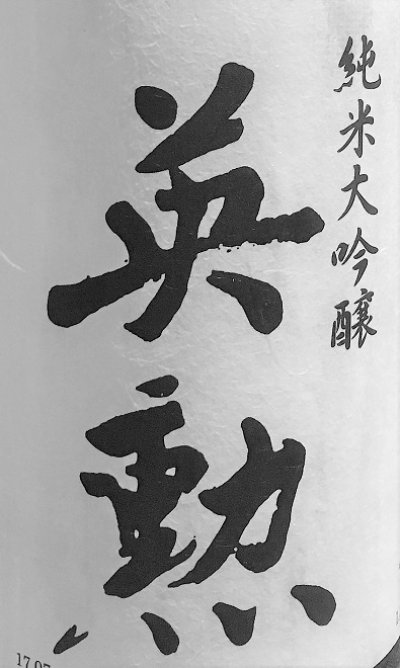 純米大吟醸
英勲
17.07